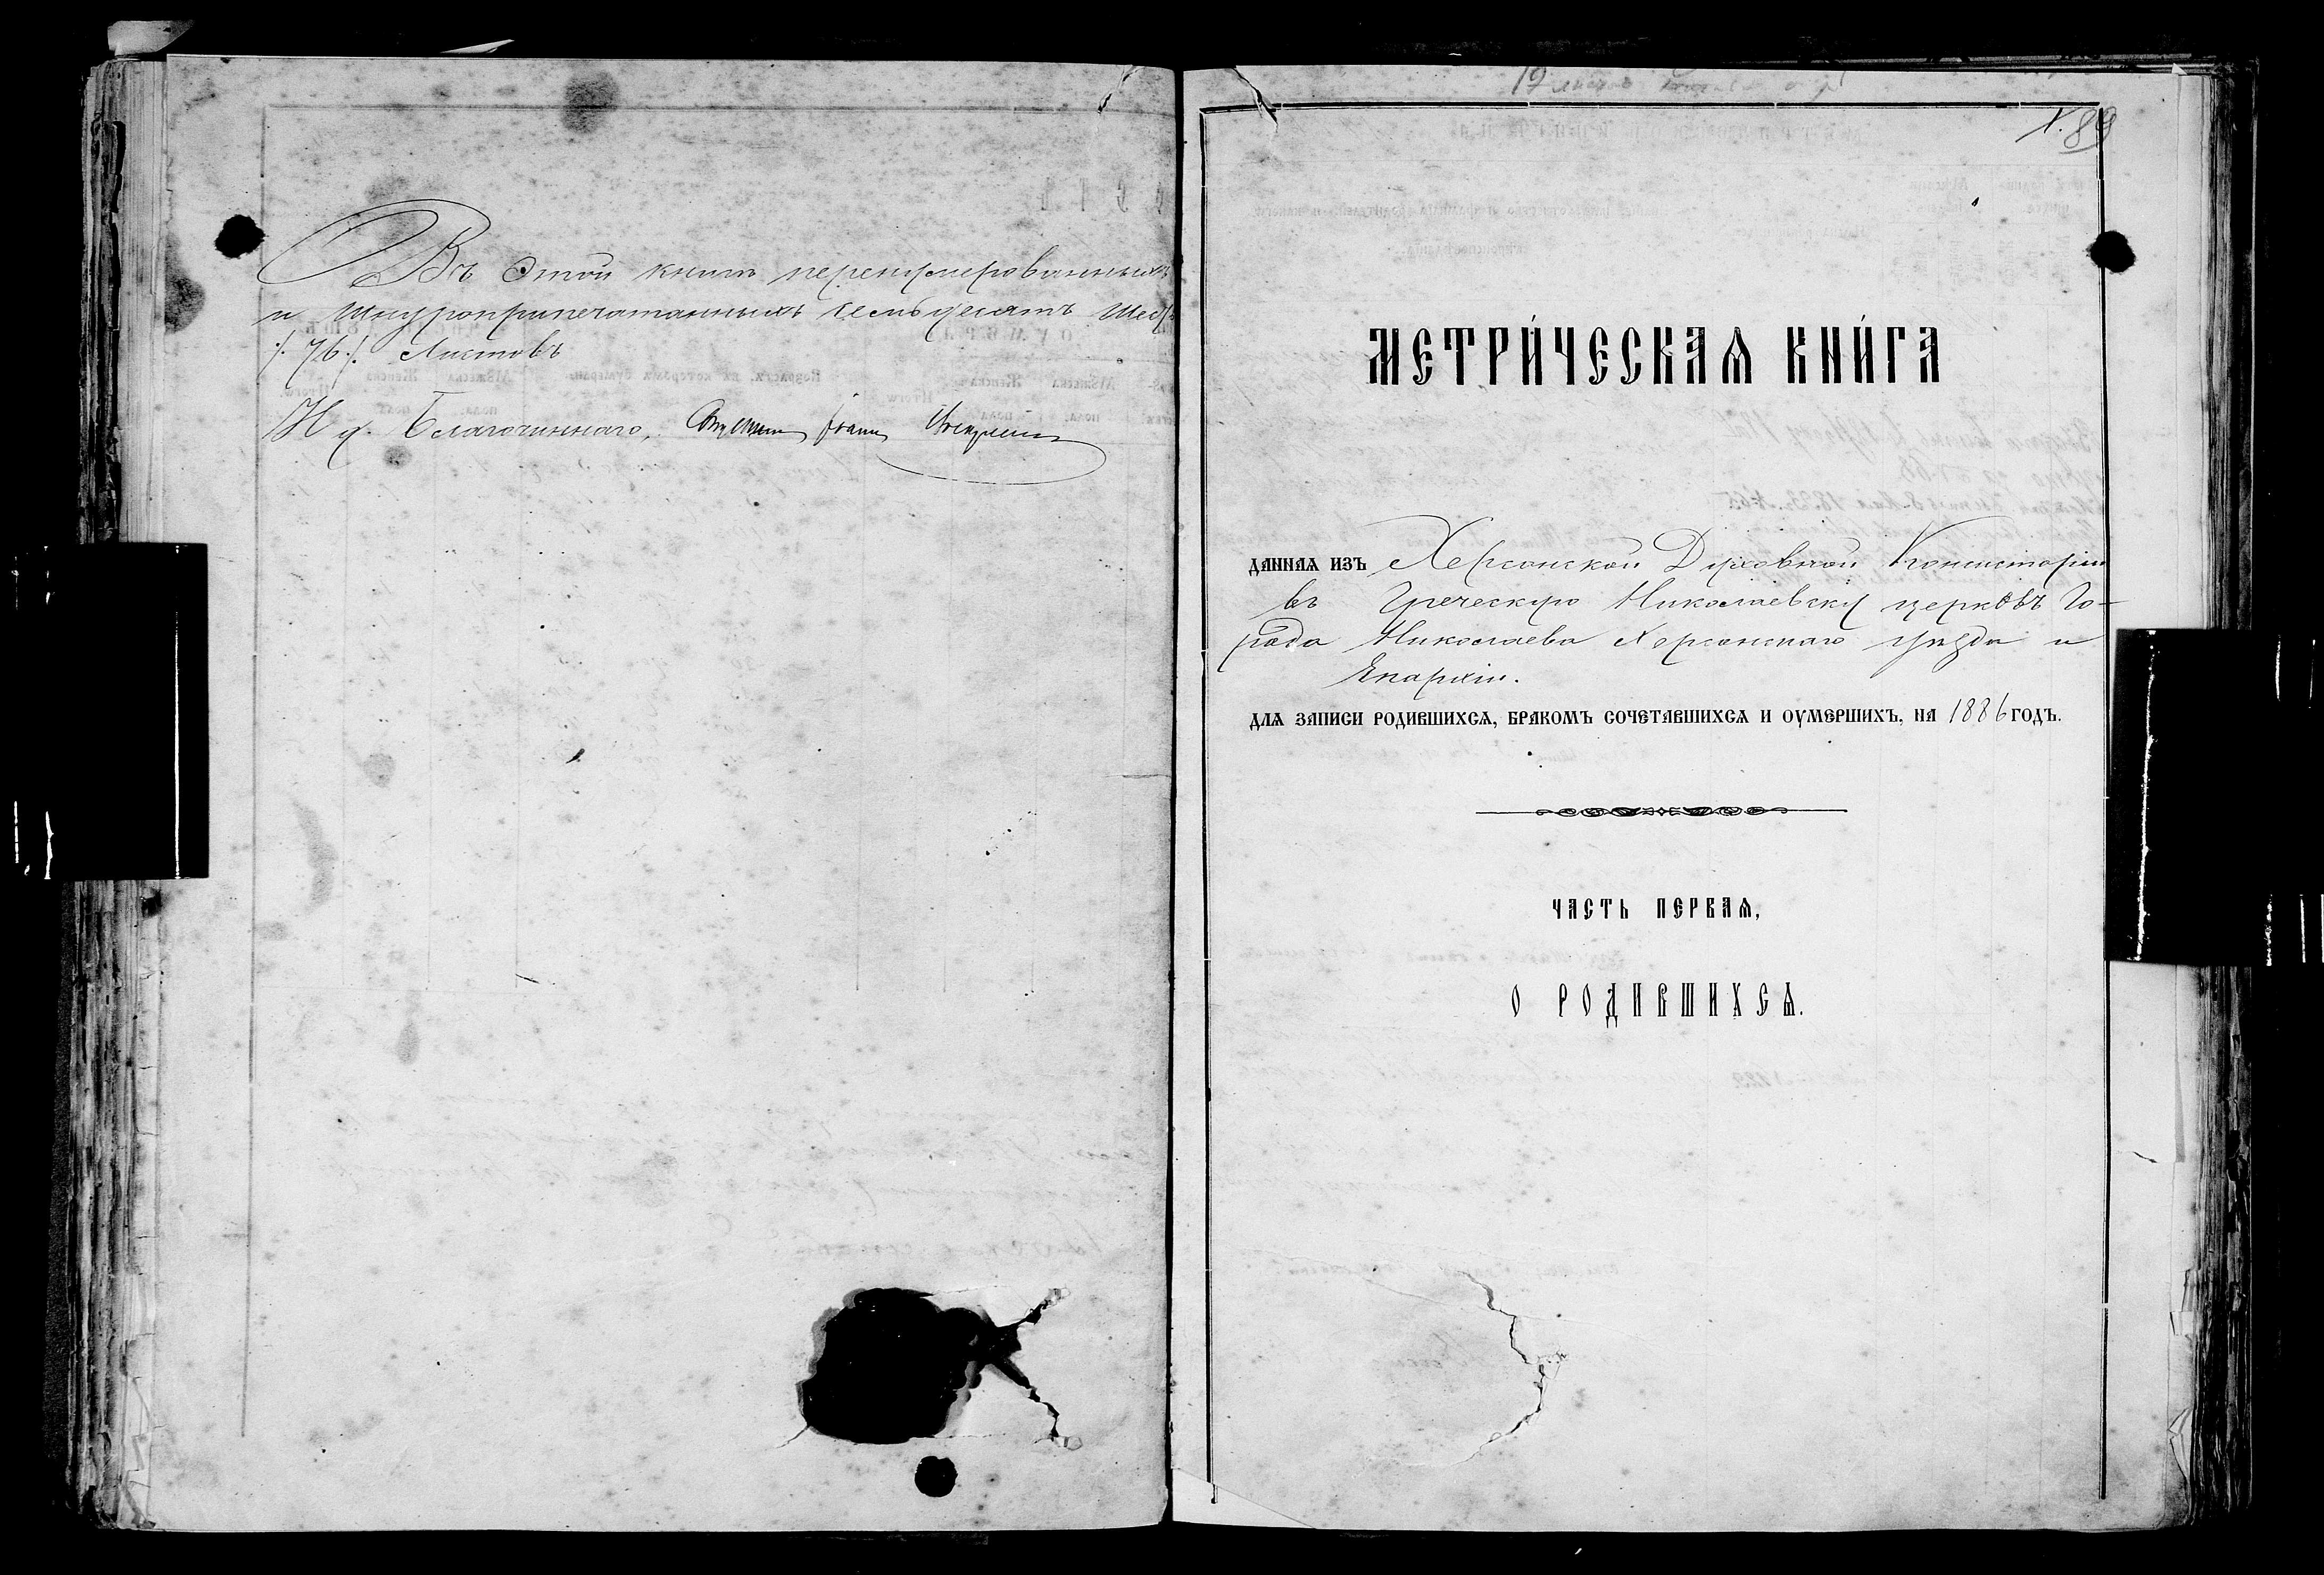 Въ этой книгѣ перенумерованныхъ
и шнуроприпечатанныхъ семьдесятъ шесть
/. 76 ./. Листовъ
И д. Благочиннаго,
89
МЕТРИ́ЧЕСКАѦ КНИ́ГА
ДАННАѦ ИЗЪ Херсонской Духовной Консисторіи
въ Греческую Николаевску церковь Го-
рода Николаева Херсонскаго уѣзда и
Епархіи.
ДЛѦ ЗАПИСИ РОДИВШИХСѦ, БРАКОМЪ СОЧЕТАВШИХСѦ И ОУМЕРШИХЪ, НА 1886 ГОДЪ.
ЧАСТЬ ПЕРВАѦ,
О РОДИВШИХСѦ.